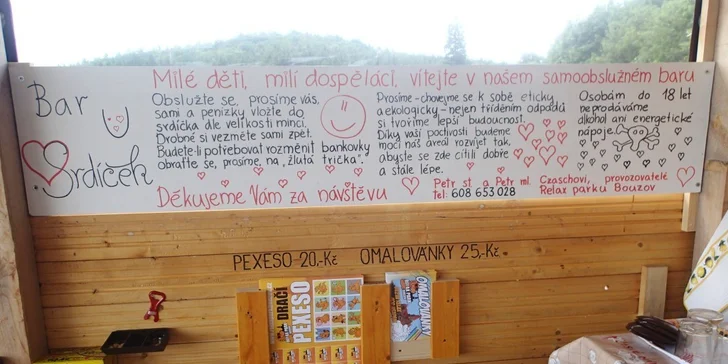 Milé děti, milí dospěláci, vítejte v našem samoobslužném baru
Bar
Srdíček
Obslužte se, prosíme vás,
sami a penízky vložte do
srdíčka dle velikosti mincí.
Drobné si vezměte sami zpět.
Budete-li potřebovat rozměnit bankovky
obraťte se, prosíme, na „žlutá trička".
Děkujeme Vám za návštěvu
Prosíme - chovejme se k sobě eticky
a ekologicky - nejen tříděním odpadů
si tvoříme lepší budoucnost.
Díky vaší poctivosti budeme
moci náš areál rozvíjet tak,
abyste se zde cítili dobře
a stále lépe.
Osobám do 18 let
neprodáváme
alkohol ani energetické
nápoje.
Petr st. a Petr ml. Czaschovi, provozovatelé
Tel: 608 653 028 Relax parku Bouzov
PEXESO 20,-Kč OMALOVÁNKY 25,-Kč
DRAČÍ
PEXESO
OMALOVÁNKY